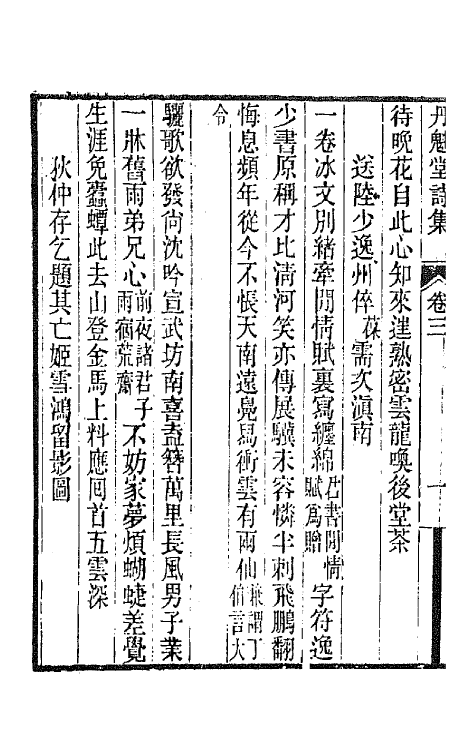 丹魁堂詩集 卷三
待晚花自此心知來遑熱密雲龍喚後堂茶
送陸少逸州倅葆需次滇南
一卷冰文別緒牽閒情賦裏寫纏綿君書閒情賦爲贈字符逸
少書原稱才比淸河笑亦傳展驥未容憐半刺飛鵬翻
悔息頻年從今不悵天南遠鳧舄衝雲有兩仙兼謂丁儉言大
令
驪歌欲發尙沈吟宣武坊南喜盍簪萬里長風男子業
一牀舊雨弟兄心前夜諸君子雨宿荒齋不妨家夢煩蝴蜨差覺
生涯免蠹蟫此去山登金馬上料應囘首五雲深
狄仲存乞題其亡姬雪鴻留影圖